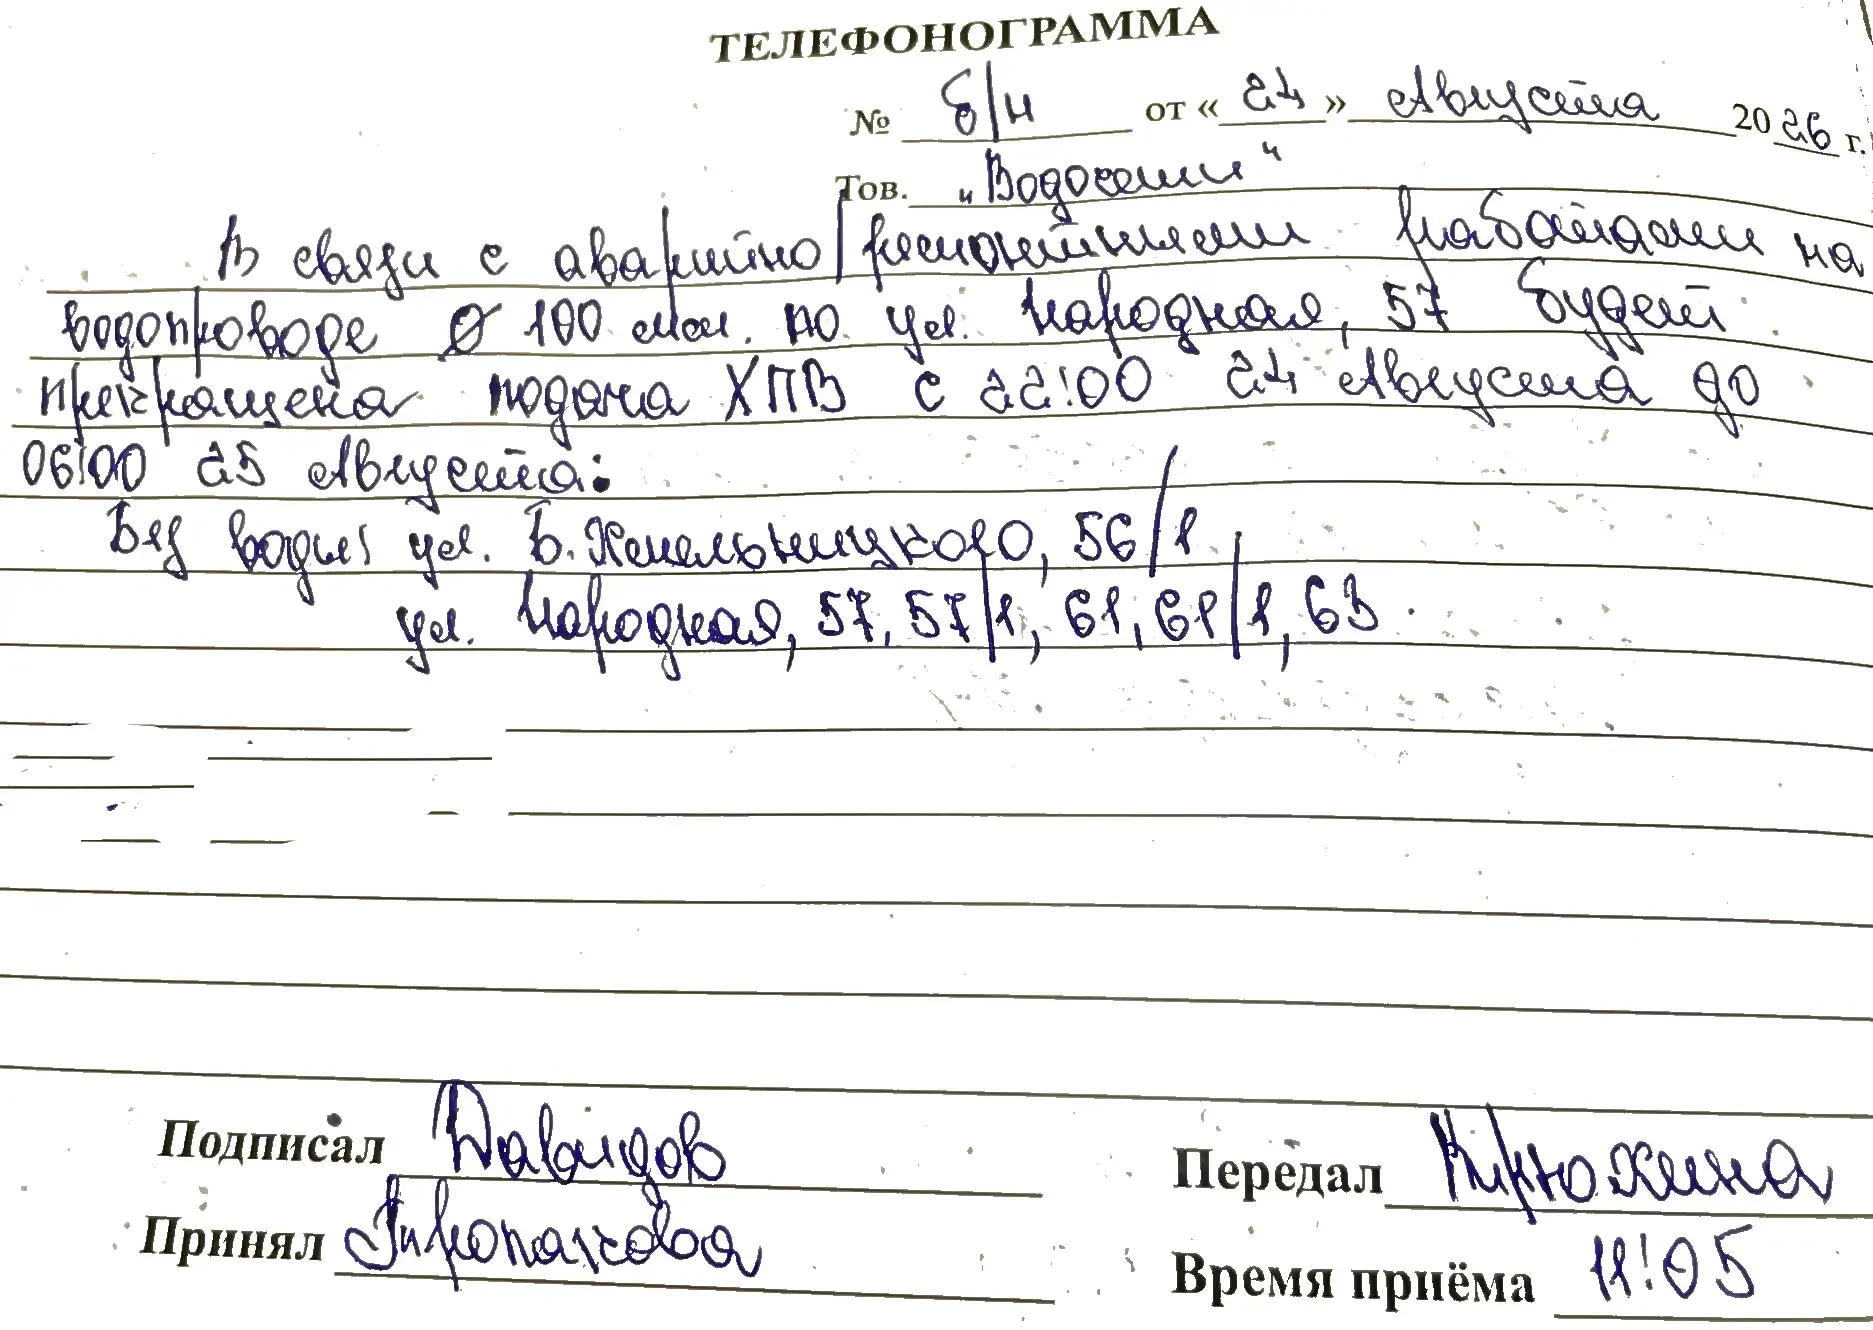 ТЕЛЕФОНОГРАММА
№ б/н от «24» Августа 2026 г.
Тов. "Водосети"
В связи с аварийно/ремонтными работами на
водопроводе Ø 100 мм. по ул. Народная, 57 будет
прекращена подача ХПВ с 22:00 24 Августа до
06:00 25 Августа:
Без воды: ул. Б. Хмельницкого, 56/1
ул. Народная, 57, 57/1, 61, 61/1, 63.
Подписал Давыдов
Передал Кирюхина
Принял
Время приёма 11:05